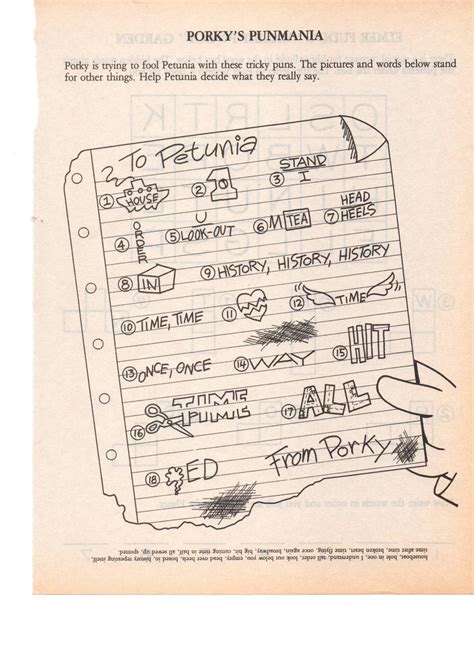 PORKY'S PUNMANIA
Porky is trying to fool Petunia with these tricky puns. The pictures and words below stand
for other things. Help Petunia decide what they really say.
To Petunia
1 HOUSE
2 1
3 STAND
I
4 ORDER
5 U
LOOK-OUT
6 M TEA
7 HEAD
HEELS
8 IN
9 HISTORY, HISTORY, HISTORY
10 TIME, TIME
11
12 TIME
13 ONCE, ONCE
14 WAY
15 HIT
16 TIME
17 ALL
18 ED
From Porky
houseboat, hole in one, I understand, tall order, look out below you, empty, head over heels, boxed in, history repeating itself,
time after time, broken heart, time flying, once again, broadway, big hit, cutting time in half, all sewed up, spotted.